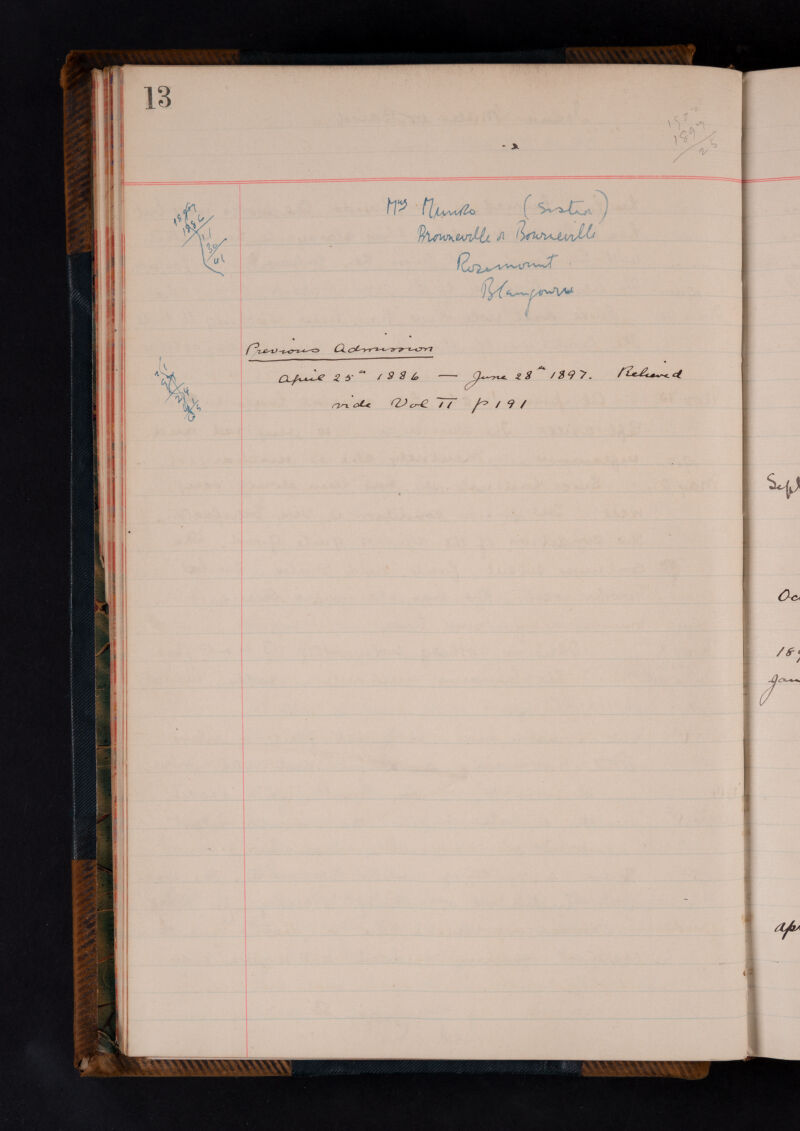 13
1897
25
Mrs Munro (Sister)
Browneville or Bourneville
Rosemount
Blairgowrie
1897
1886
11
Previous Admission
April 25th 1886 — June 28th 1897. Relieved
vide Vol II p 191
Sept
Oc
18
Jan
Ap